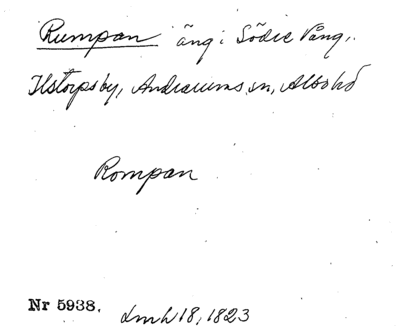 Rumpan äng i Södre Vång,
Ilstorpsby, Andrarums sn, Albo hd
Rompan
Nr 5938. Lmh 18, 1823